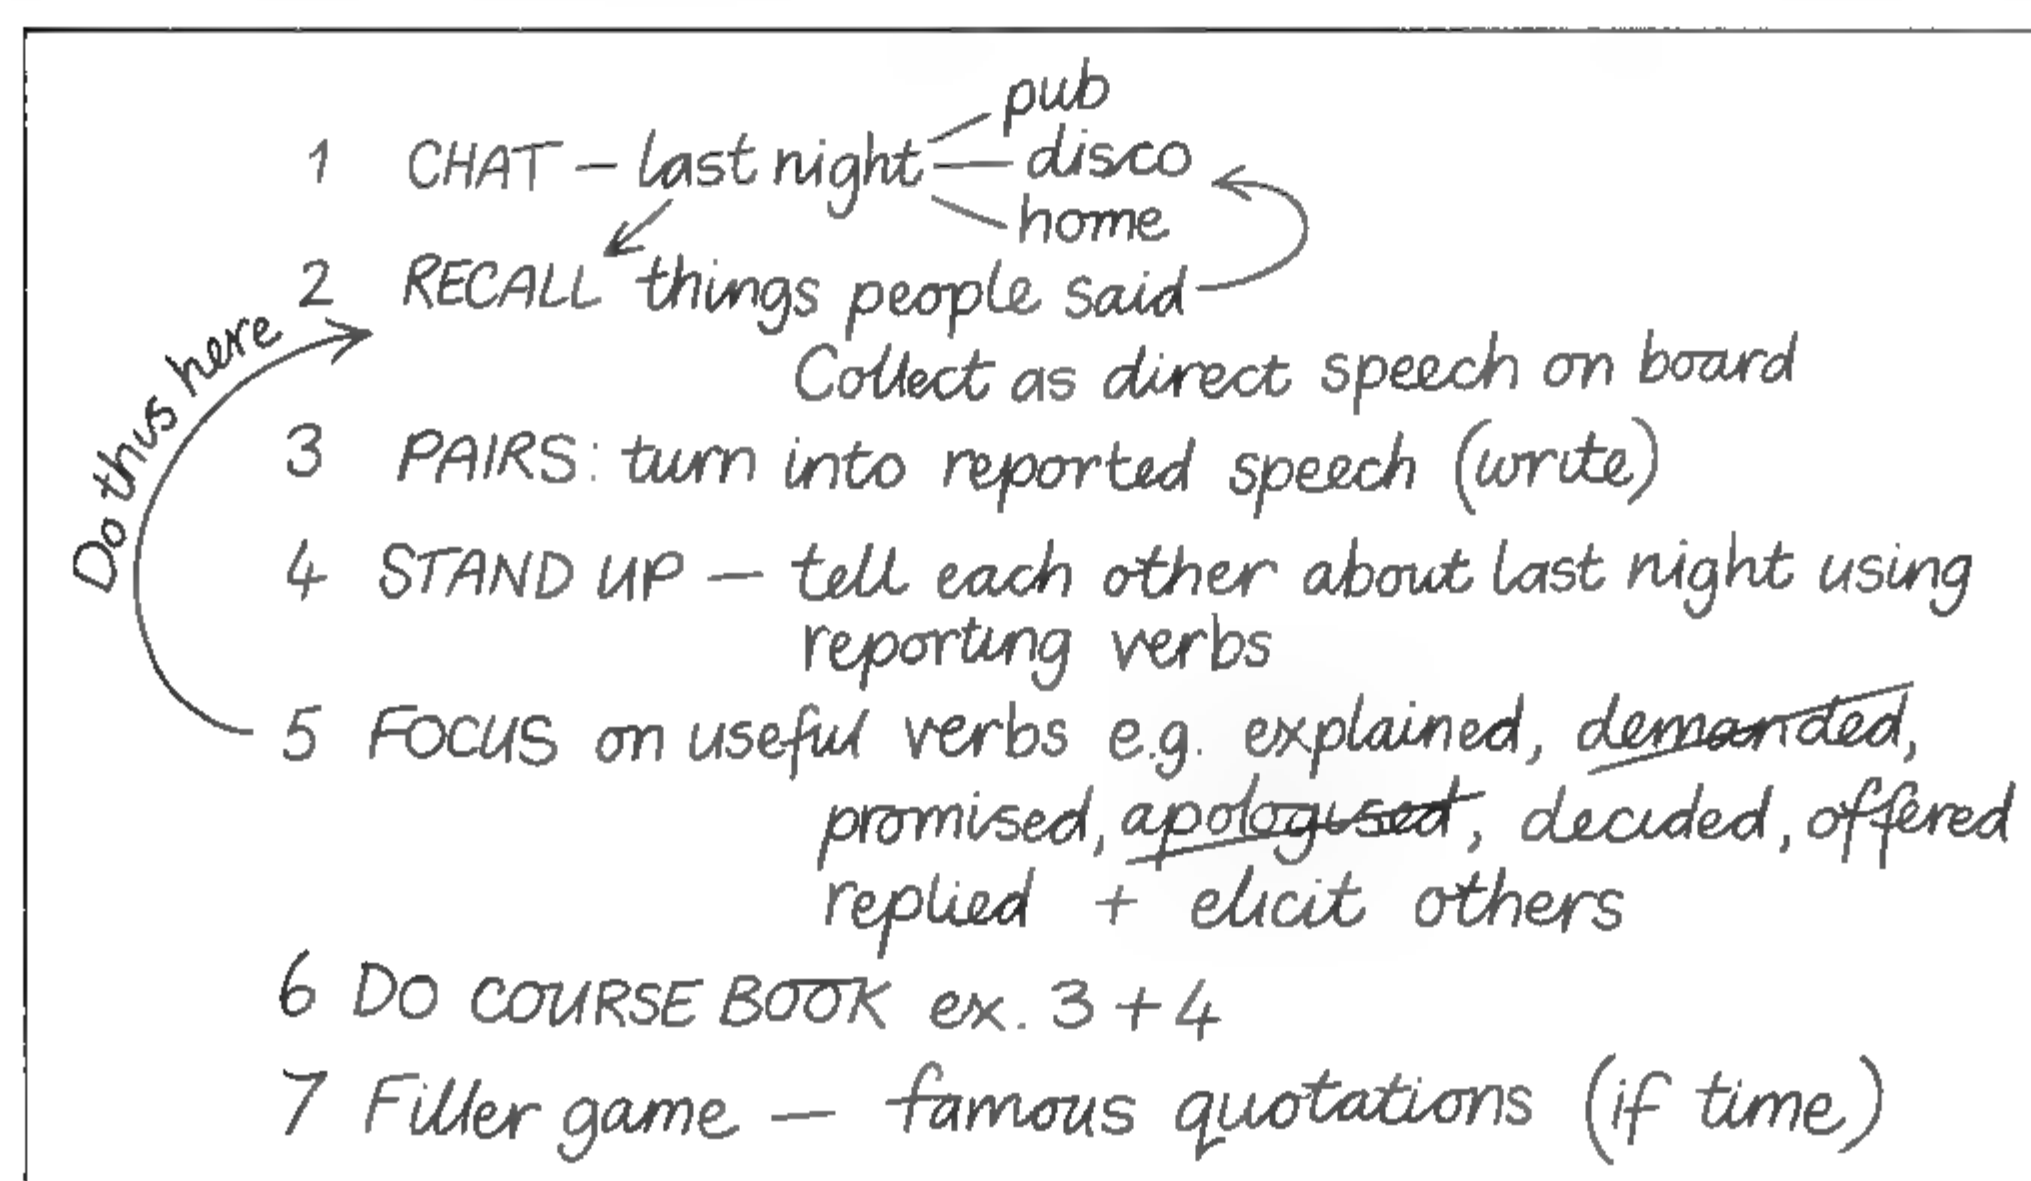 pub
1 CHAT – last night — disco
home
2 RECALL things people said
Collect as direct speech on board
Do this here
3 PAIRS: turn into reported speech (write)
4 STAND UP – tell each other about last night using
reporting verbs
5 FOCUS on useful verbs e.g. explained, demanded,
promised, apologised, decided, offered
replied + elicit others
6 DO COURSE BOOK ex. 3 + 4
7 Filler game — famous quotations (if time)